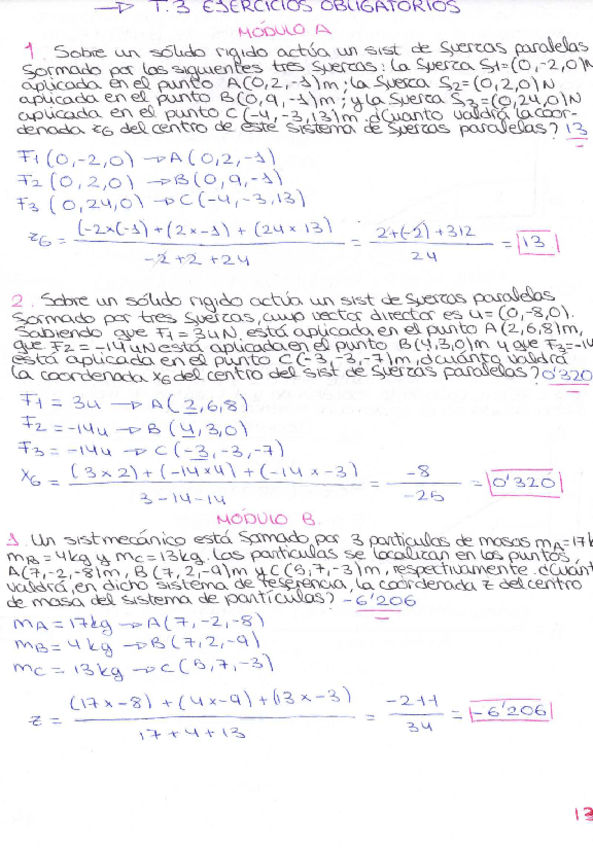 → T.3 EJERCICIOS OBLIGATORIOS
MÓDULO A
1. Sobre un sólido rigido actúa un sist de fuerzas paralelas
formado por las siguientes tres fuerzas: la fuerza f1=(0,-2,0)N
aplicada en el punto A(0,2,-1)m; la fuerza f2=(0,2,0)N
aplicada en el punto B(0,9,-1)m; y la fuerza f3=(0,24,0)N
aplicada en el punto C(-4,-3,13)m. ¿Cuanto valdrá la coor-
denada zG del centro de este sistema de fuerzas paralelas? 13
F1 (0,-2,0) → A(0,2,-1)
F2 (0,2,0) → B(0,9,-1)
F3 (0,24,0) → C(-4,-3,13)
zG = (-2x(-1)+(2x-1)+(24x13) / -2+2+24 = 2+(-2)+312 / 24 = 13
2. Sobre un sólido rigido actúa un sist de fuerzas paralelas
formado por tres fuerzas, cuyo vector director es u=(0,-8,0).
Sabiendo que F1=3uN está aplicada en el punto A(2,6,8)m,
que F2=-14uN está aplicada en el punto B(4,3,0)m y que F3=-14
está aplicada en el punto C(-3,-3,-7)m, ¿cuánto valdrá
la coordenada xG del centro del sist de fuerzas paralelas? 0'320
F1 = 3u → A(2,6,8)
F2 = -14u → B(4,3,0)
F3 = -14u → C(-3,-3,-7)
XG = (3x2)+(-14x4)+(-14x-3) / 3-14-14 = -8 / -25 = 0'320
MÓDULO B
1. Un sist mecánico está formado por 3 particulas de masas mA=17k
mB=4kg y mC=13kg. Las particulas se localizan en los puntos,
A(7,-2,-8)m, B(7,2,-9)m y C(5,7,-3)m, respectivamente. ¿Cuánt
valdrá, en dicho sistema de referencia, la coordenada z del centro
de masa del sistema de partículas? -6'206
mA = 17kg → A(7,-2,-8)
mB = 4kg → B(7,2,-9)
mC = 13kg → C(5,7,-3)
z = (17x-8)+(4x-9)+(13x-3) / 17+4+13 = -211 / 34 = -6'206
13